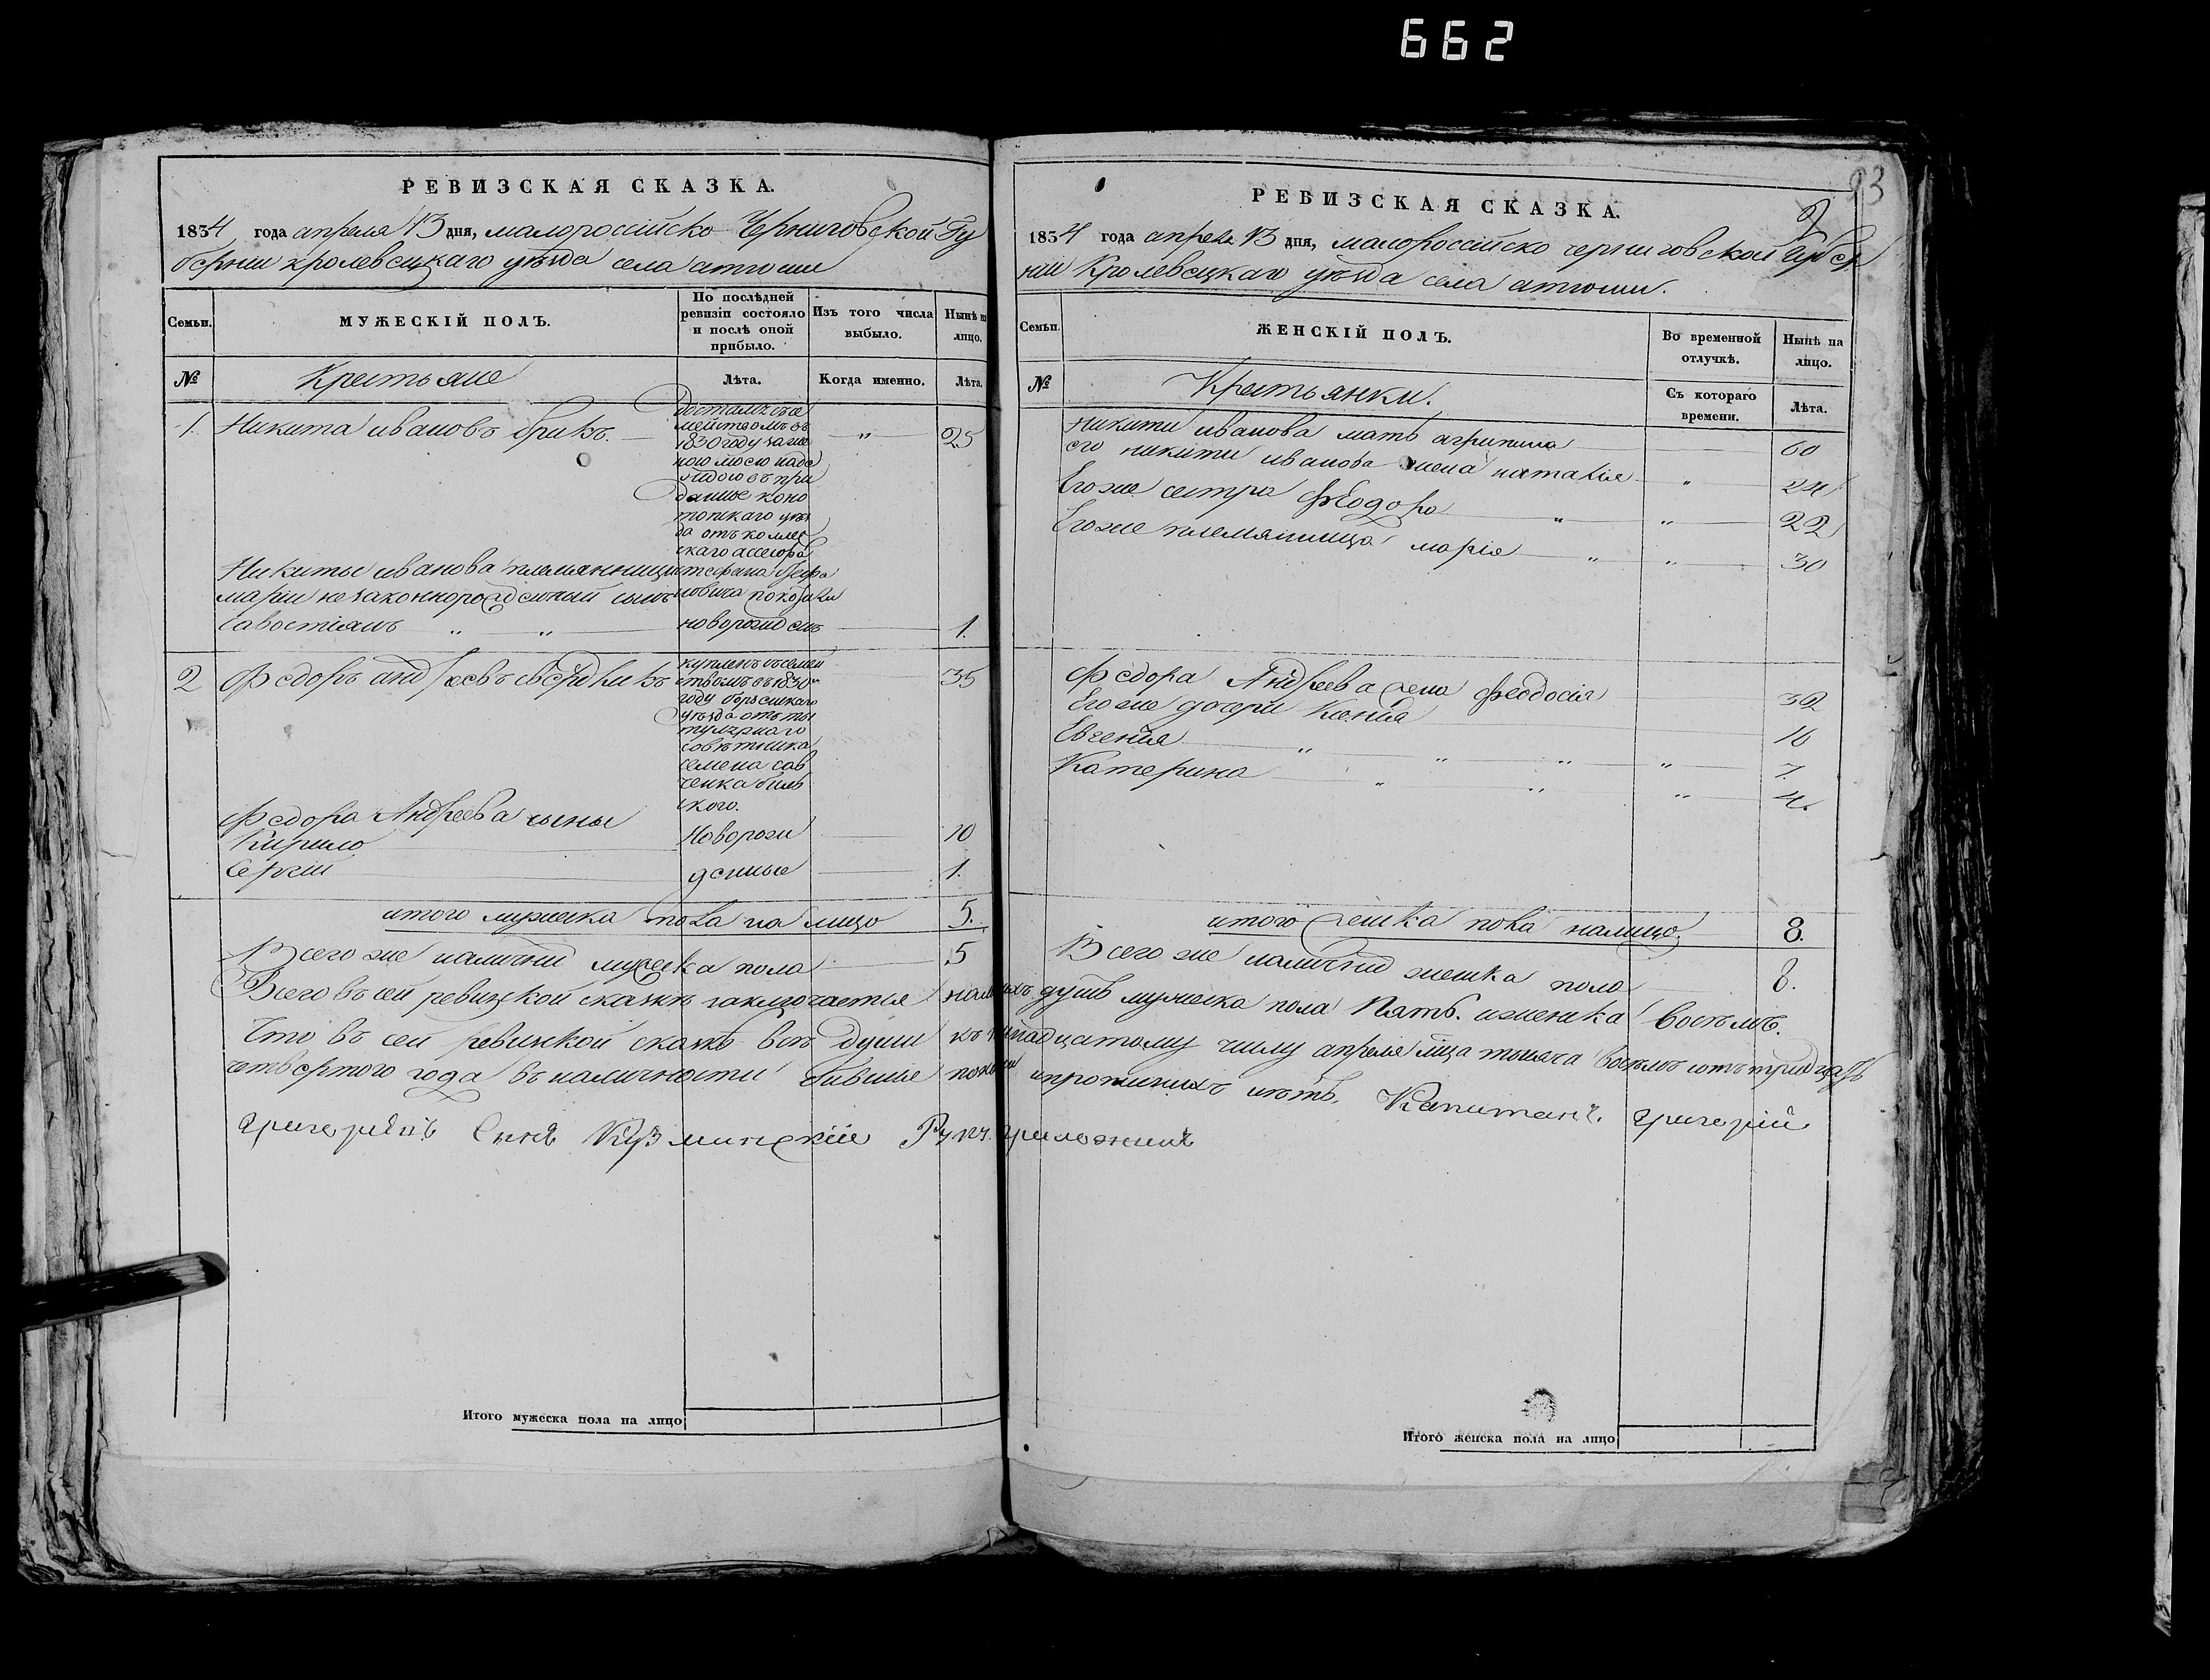 662
93
РЕВИЗСКАЯ СКАЗКА.
1834 года апреля 13 дня, малоросiйско Черниговской Гу
бернии кролевецкаго уѣзда села атюши
Семьи.
МУЖЕСКІЙ ПОЛЪ.
По послѣдней ревизіи состояло и послѣ оной прибыло.
Изъ того числа выбыло.
Нынѣ на лицо.
№
Крестьяне
Лѣта.
Когда именно.
Лѣта.
1. Никита ивановъ брикъ. 25
досталсь се
мействомъ въ
1830 году за же
ною моею наде
ждою въ при
данное коно
топскаго уѣз
да отъ коллеж
скаго ассесора
Никиты иванова племянницы
марiи незаконнорожденный сынъ
Савостiянъ новорожденъ 1.
2 Федоръ андреевъ 35
купленъ съ семей
ствомъ въ 1830м
году борзенскаго
уѣзда отъ ти
тулярнаго
совѣтника
семена сав
ченка биль
ского.
Федора Андреева сыны
Кирило Новорож 10
Сергiй денные 1.
итого мужеска пола на лицо 5.
Всего же налични мужеска пола 5
РЕВИЗСКАЯ СКАЗКА.
2
1834 года апреля 13 дня, малороссiйско черниговской губер
нии Кролевецкаго уѣзда села атюши.
Семьи.
ЖЕНСКІЙ ПОЛЪ.
Во временной отлучкѣ.
Нынѣ на лицо.
№
Крестьянки.
Съ котораго времени.
Лѣта.
Никити иванова мать агрипина 60
его никити иванова жена наталiя 24
Его же сестра Феодора 22
Его же племянница марiя 30
Федора Андреева жена Феодосiя 32
Его же дочери Ксенiя 16
Евгенiя 7.
Катерина 4.
итого женска пола налицо. 8.
Всего же налични женска пола 8.
Всего въ сей ревизкой сказкѣ заключается душъ мужеска пола Пять. иженска восѣмъ.
Что въ сей ревизкой сказкѣ всѣ души числу апреля мца тысяча восѣмъ сотъ тридцать
четвертого года въ наличности бившiе Капитанъ Григорiй
Григорiевъ Сынъ Кузминскiй Руку приложилъ
Итого мужеска пола на лицо
Итого женска пола на лицо